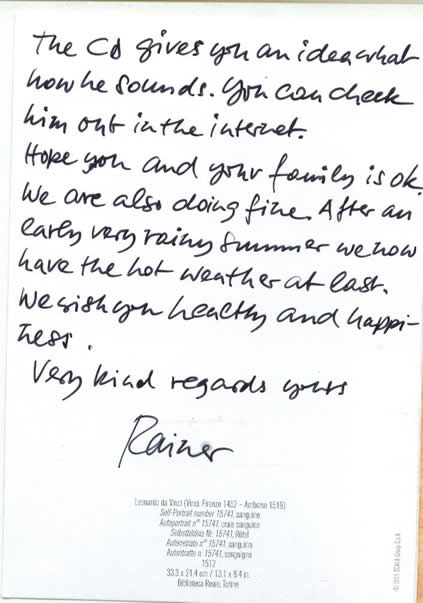 The CD gives you an idea what
how he sounds. You can check
him out in the internet.
Hope you and your family is ok.
We are also doing fine. After an
early very rainy summer we now
have the hot weather at last.
We wish you healthy and happi-
ness.
Very kind regards yours
Rainer
Leonardo da Vinci (Vinci, Firenze 1452 - Amboise 1519)
Self-Portrait number 15741, sanguine
Autoportrait n° 15741, craie sanguine
Selbstbildnis Nr. 15741, Rötel
Autorretrato n° 15741, sanguina
Autoritratto n. 15741, sanguigna
1512
33.3 x 21.4 cm / 13.1 x 8.4 in.
Biblioteca Reale, Torino
© 2011 SCALA Group S.p.A.